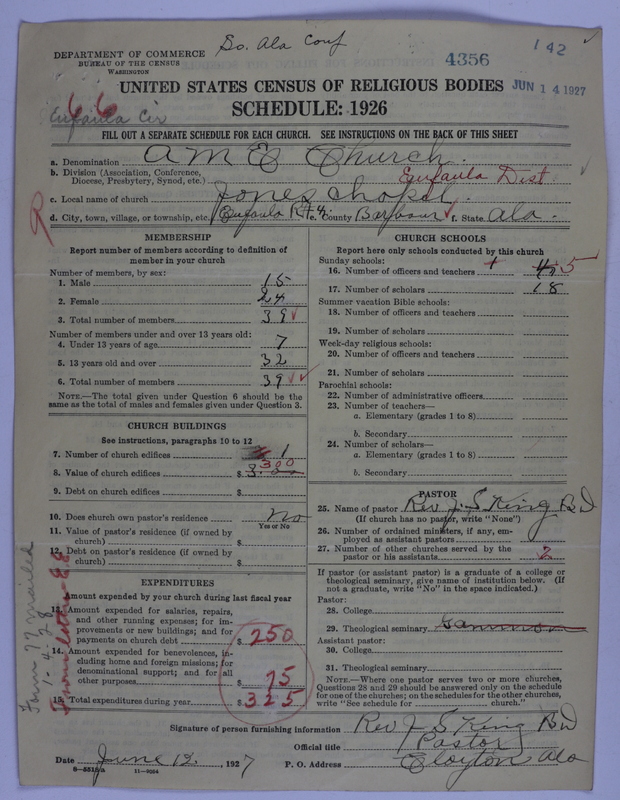 So. Ala Conf
4356
142
DEPARTMENT OF COMMERCE
BUREAU OF THE CENSUS
WASHINGTON
UNITED STATES CENSUS OF RELIGIOUS BODIES
JUN 14 1927
SCHEDULE: 1926
66
Eufaula Cir
FILL OUT A SEPARATE SCHEDULE FOR EACH CHURCH. SEE INSTRUCTIONS ON THE BACK OF THIS SHEET
a. Denomination A M E Church
b. Division (Association, Conference, Diocese, Presbytery, Synod, etc.) Eufaula Dist
c. Local name of church Jones Chapel
d. City, town, village, or township, etc. Eufaula Rt 4. e. County Barbour f. State Ala.
MEMBERSHIP
Report number of members according to definition of
member in your church
Number of members, by sex:
1. Male 15
2. Female 24
3. Total number of members 39
Number of members under and over 13 years old:
4. Under 13 years of age 7
5. 13 years old and over 32
6. Total number of members 39
NOTE.—The total given under Question 6 should be the
same as the total of males and females given under Question 3.
CHURCH BUILDINGS
See instructions, paragraphs 10 to 12
7. Number of church edifices 1
8. Value of church edifices $ 300
9. Debt on church edifices $
10. Does church own pastor's residence No
Yes or No
11. Value of pastor's residence (if owned by
church) $
12. Debt on pastor's residence (if owned by
church) $
EXPENDITURES
Amount expended by your church during last fiscal year
13. Amount expended for salaries, repairs,
and other running expenses; for im-
provements or new buildings; and for
payments on church debt $ 250
14. Amount expended for benevolences, in-
cluding home and foreign missions; for
denominational support; and for all
other purposes $ 75
15. Total expenditures during year $ 325
Form 77 mailed
1-4-28
From letter
CHURCH SCHOOLS
Report here only schools conducted by this church
Sunday schools:
16. Number of officers and teachers 5
17. Number of scholars 18
Summer vacation Bible schools:
18. Number of officers and teachers
19. Number of scholars
Week-day religious schools:
20. Number of officers and teachers
21. Number of scholars
Parochial schools:
22. Number of administrative officers
23. Number of teachers—
a. Elementary (grades 1 to 8)
b. Secondary
24. Number of scholars—
a. Elementary (grades 1 to 8)
b. Secondary
PASTOR
25. Name of pastor Rev J. S King B D
(If church has no pastor, write "None")
26. Number of ordained ministers, if any, em-
ployed as assistant pastors
27. Number of other churches served by the
pastor or his assistants 2
If pastor (or assistant pastor) is a graduate of a college or
theological seminary, give name of institution below. (If
not a graduate, write "No" in the space indicated.)
Pastor:
28. College
29. Theological seminary Gammon
Assistant pastor:
30. College
31. Theological seminary
NOTE.—Where one pastor serves two or more churches,
Questions 28 and 29 should be answered only on the schedule
for one of the churches; on the schedules for the other churches,
write "See schedule for church."
Signature of person furnishing information Rev J S King B D
Official title Pastor
Date June 12, 1927 P. O. Address Clayton Ala
8—5518a 11—9064